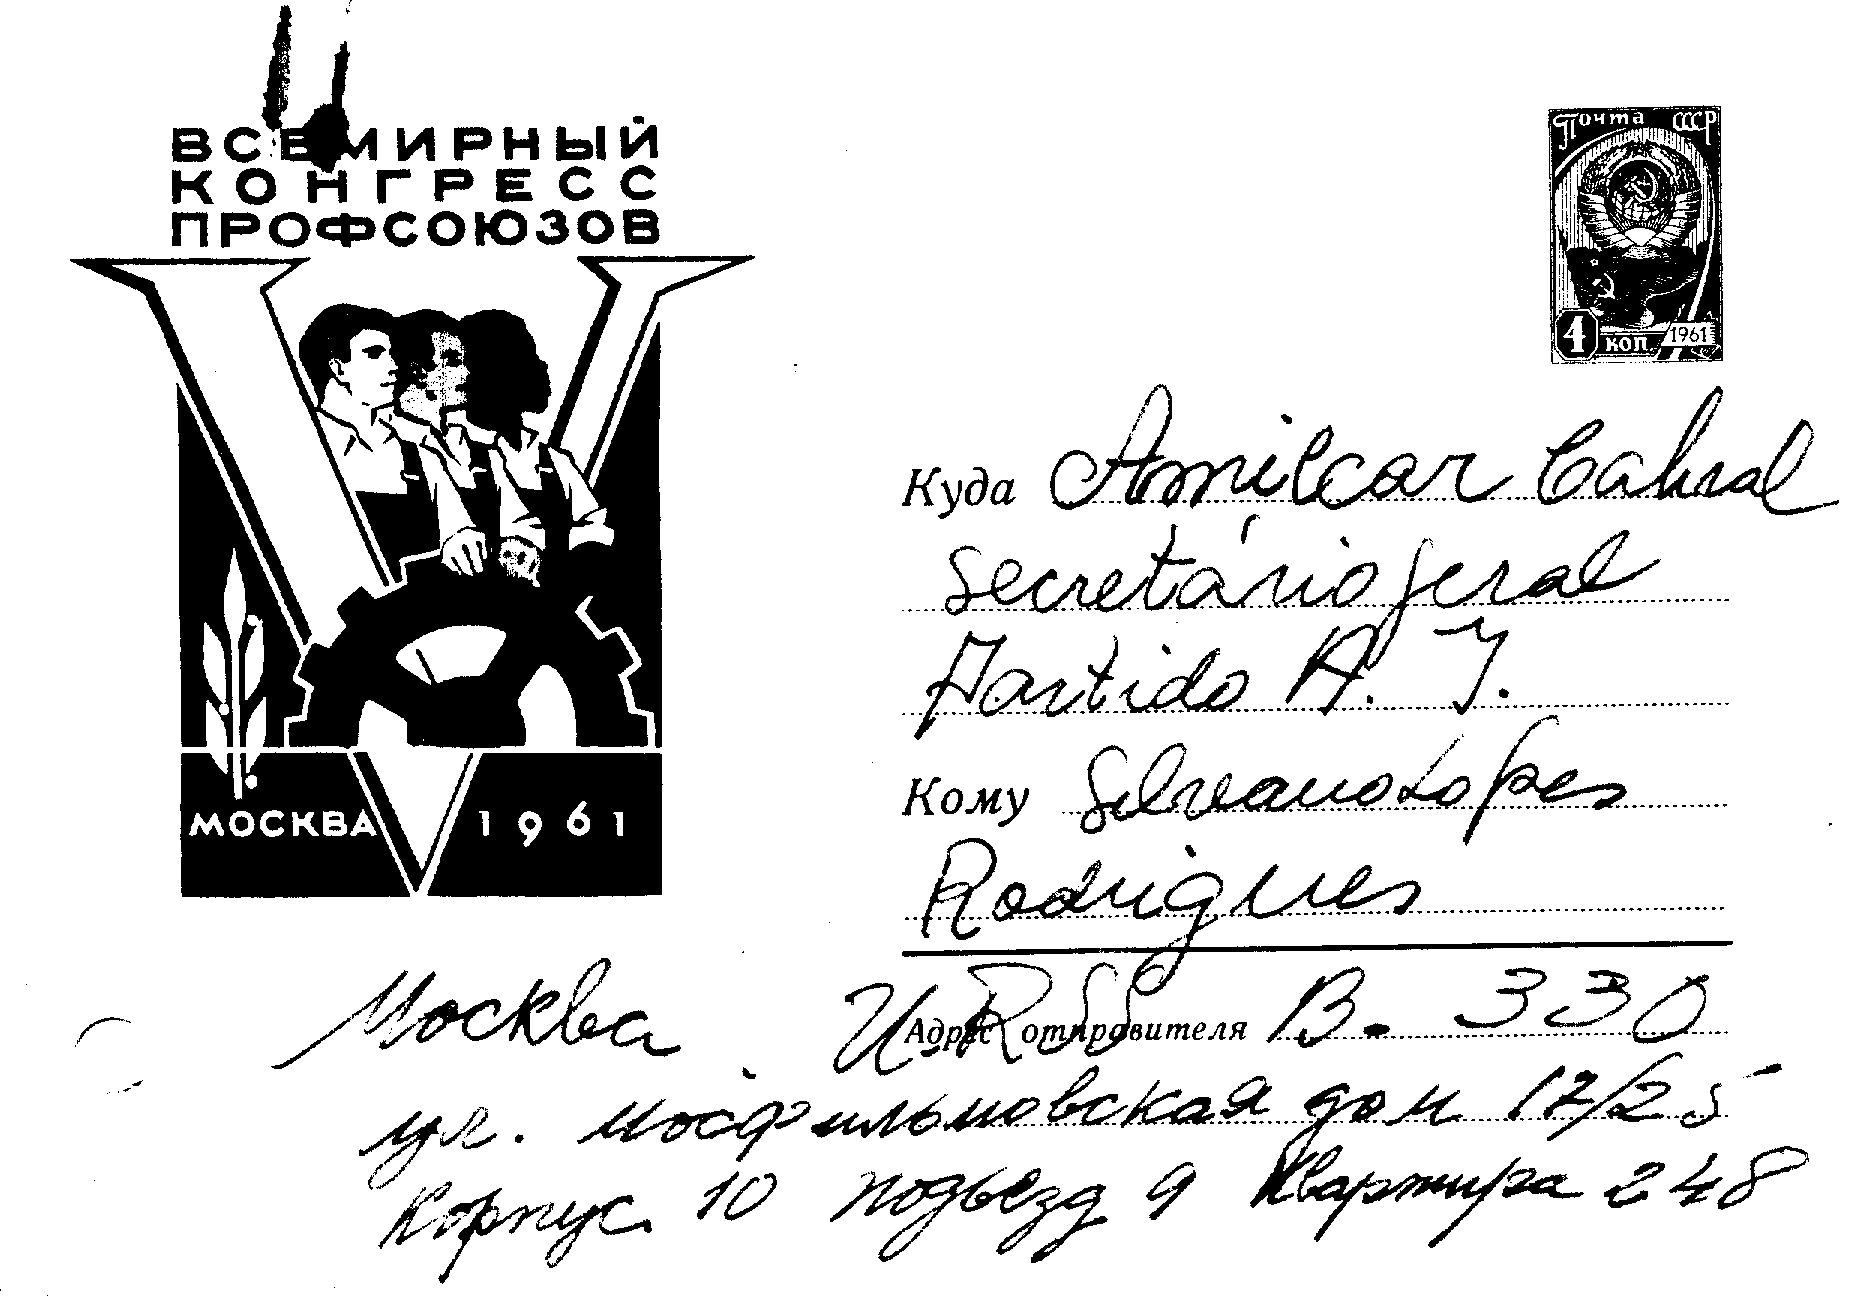 ВСЕМИРНЫЙ
КОНГРЕСС
ПРОФСОЮЗОВ
МОСКВА 1961
Почта СССР
4 коп. 1961
Куда Amilcar Cabral
Secretário geral
Partido A. I.
Кому Silvano Lopes
Rodrigues
Адрес отправителя
Москва В. 330
ул. Мосфильмовская дом 17/25
Корпус 10 подъезд 9 Квартира 248